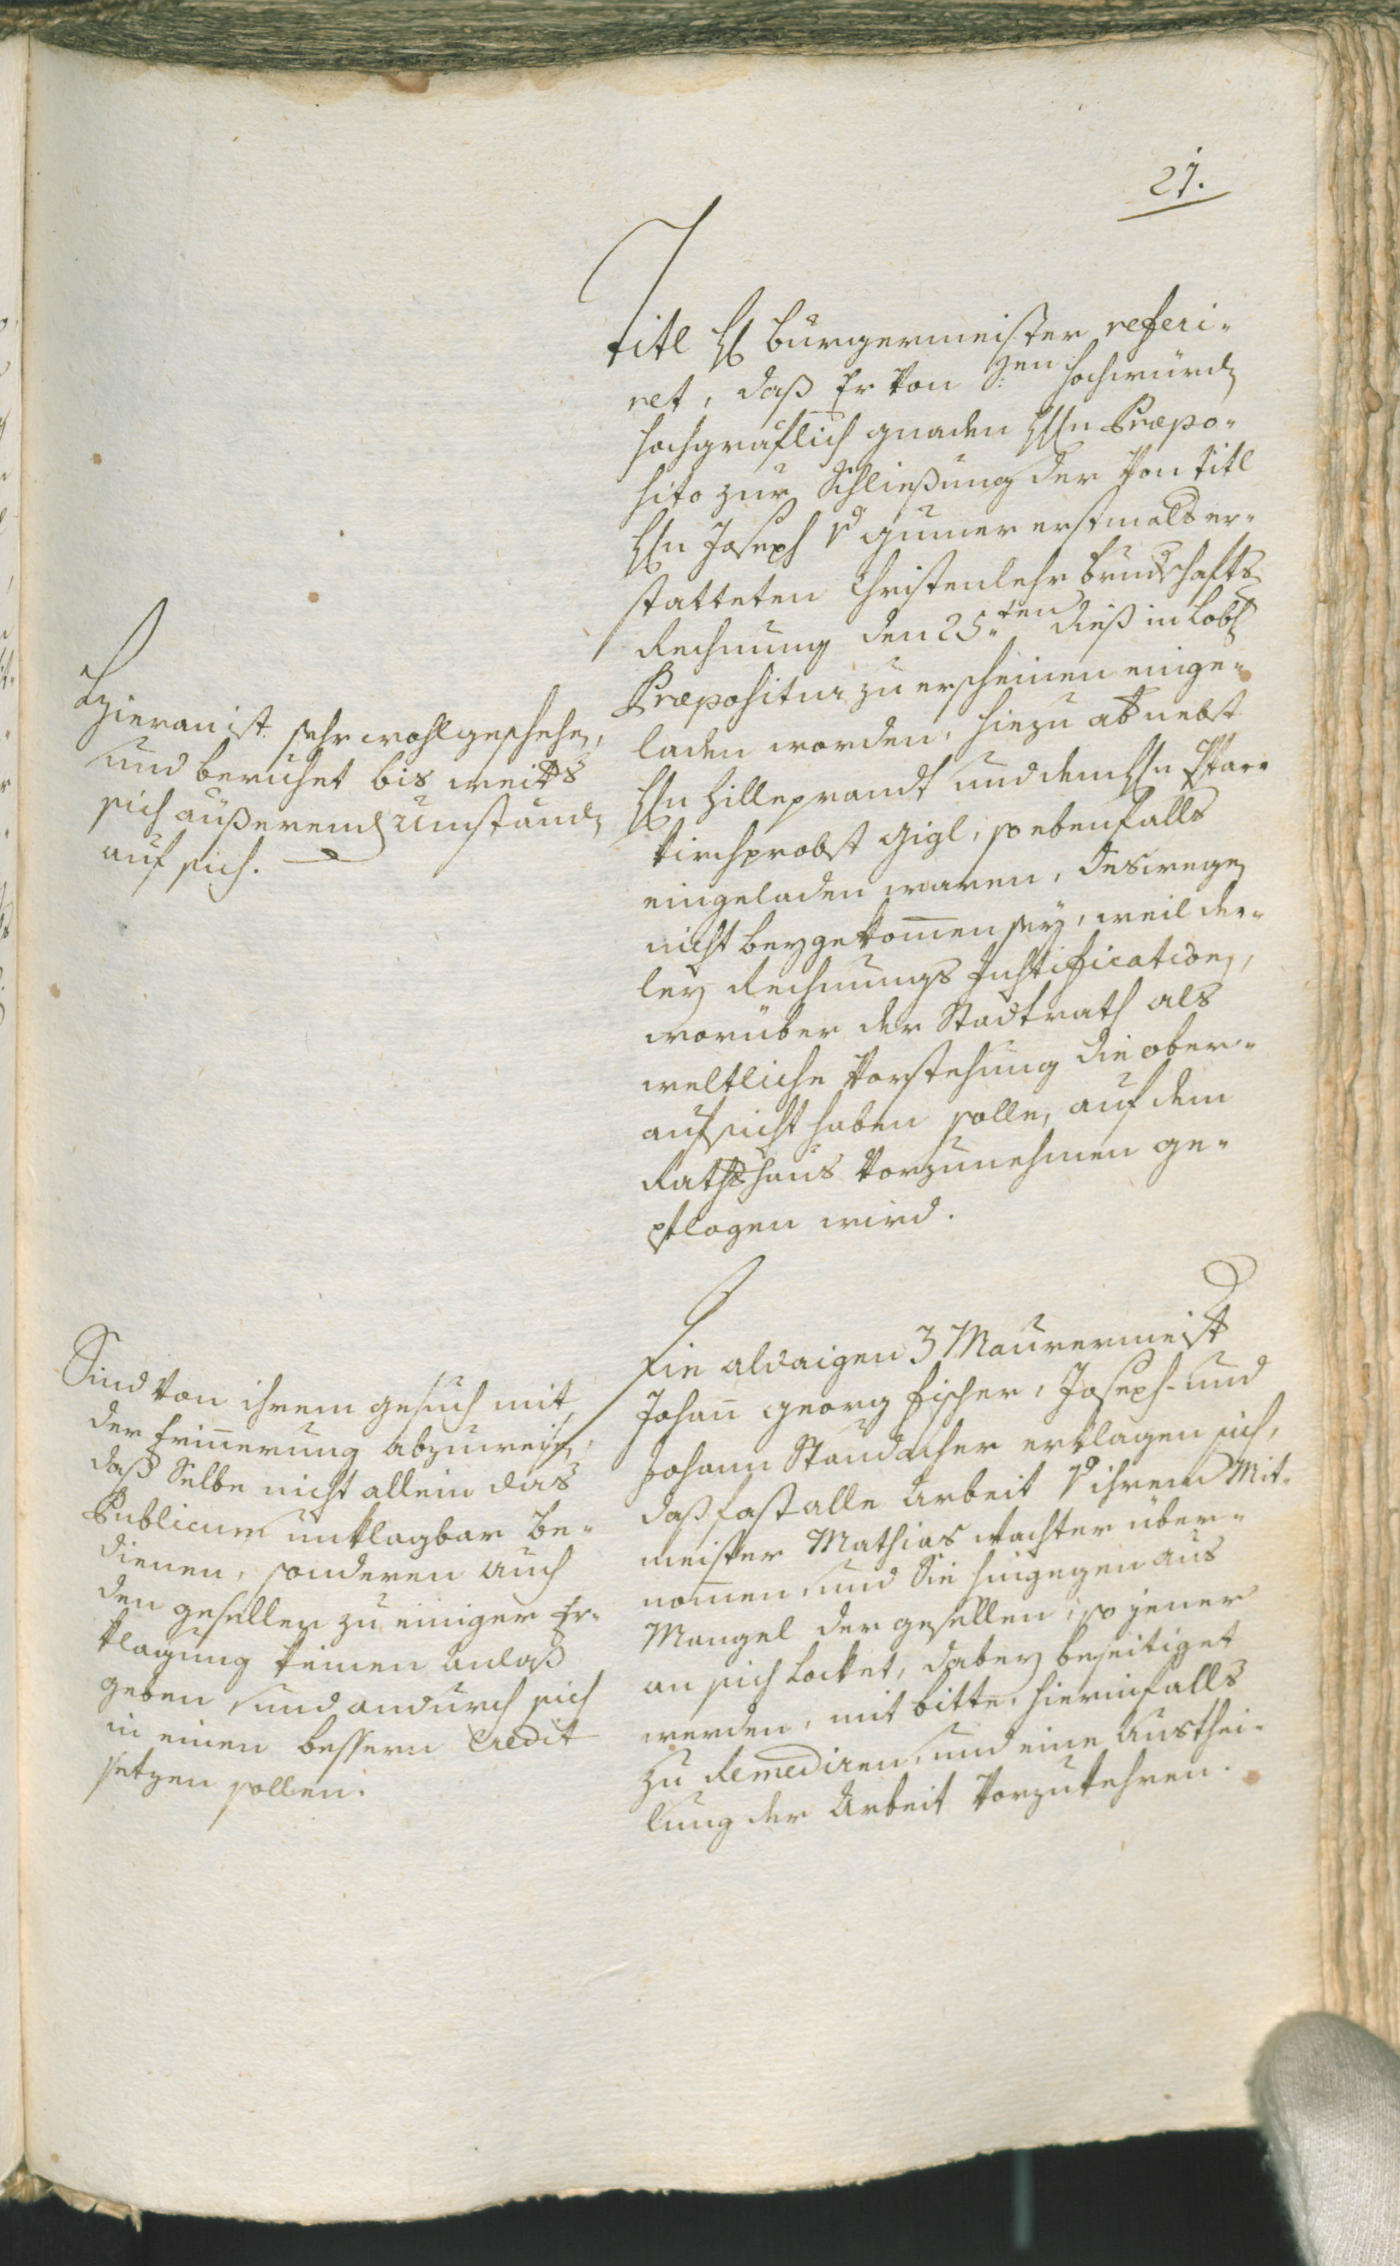 21.
Titl H Bürgermeister referi-
ret, daß Er von Sr. hochwürdn
hochgräflich gnaden HHn Præpo-
sito zur Schließung der von Titl
HHn Joseph v gumer erstmals er-
statteten Christenlehr bruderschafts
Rechnung den 25.ten dieß in Lobl
Præpositur zu erscheinen einge-
laden worden, hiezu aber nebst
HHn Hilleprandt und dem HHn Pfar-
kirchprobst Gigl, so ebenfalls
eingeladen waren, deswegen
nicht beygekommen sey, weil der-
ley Rechnungs Justificationen,
worüber der Stadtrath als
weltliche Vorstehung die ober-
aufsicht haben solle, auf dem
Rathshaus vorzunehmen ge-
pflogen wird.
Hieran ist sehr wohl geschehen,
und beruhet bis weiters
sich äußerenden Umständen
auf sich.
Die alldaigen 3 Maurermeister
Johann Georg Fischer, Joseph- und
Johann Staudacher erklagen sich,
daß fast alle Arbeit v ihrem Mit-
meister Mathias Wachter über-
nommen, und Sie hingegen aus
Mangel der gesellen, so jener
an sich Locket, dabey beseitiget
werden, mit bitte, hierinfalls
zu Remediren, und eine Austhei-
lung der Arbeit vorzukehren.
Sind von ihrem gesuch mit
der Erinnerung abzuweisen,
daß Selbe nicht allein das
Publicum unklagbar be-
dienen, sonderen auch
den gesellen zu einiger Er-
klagung keinen Anlaß
geben, und andurch sich
in einen bessern Credit
setzen sollen.